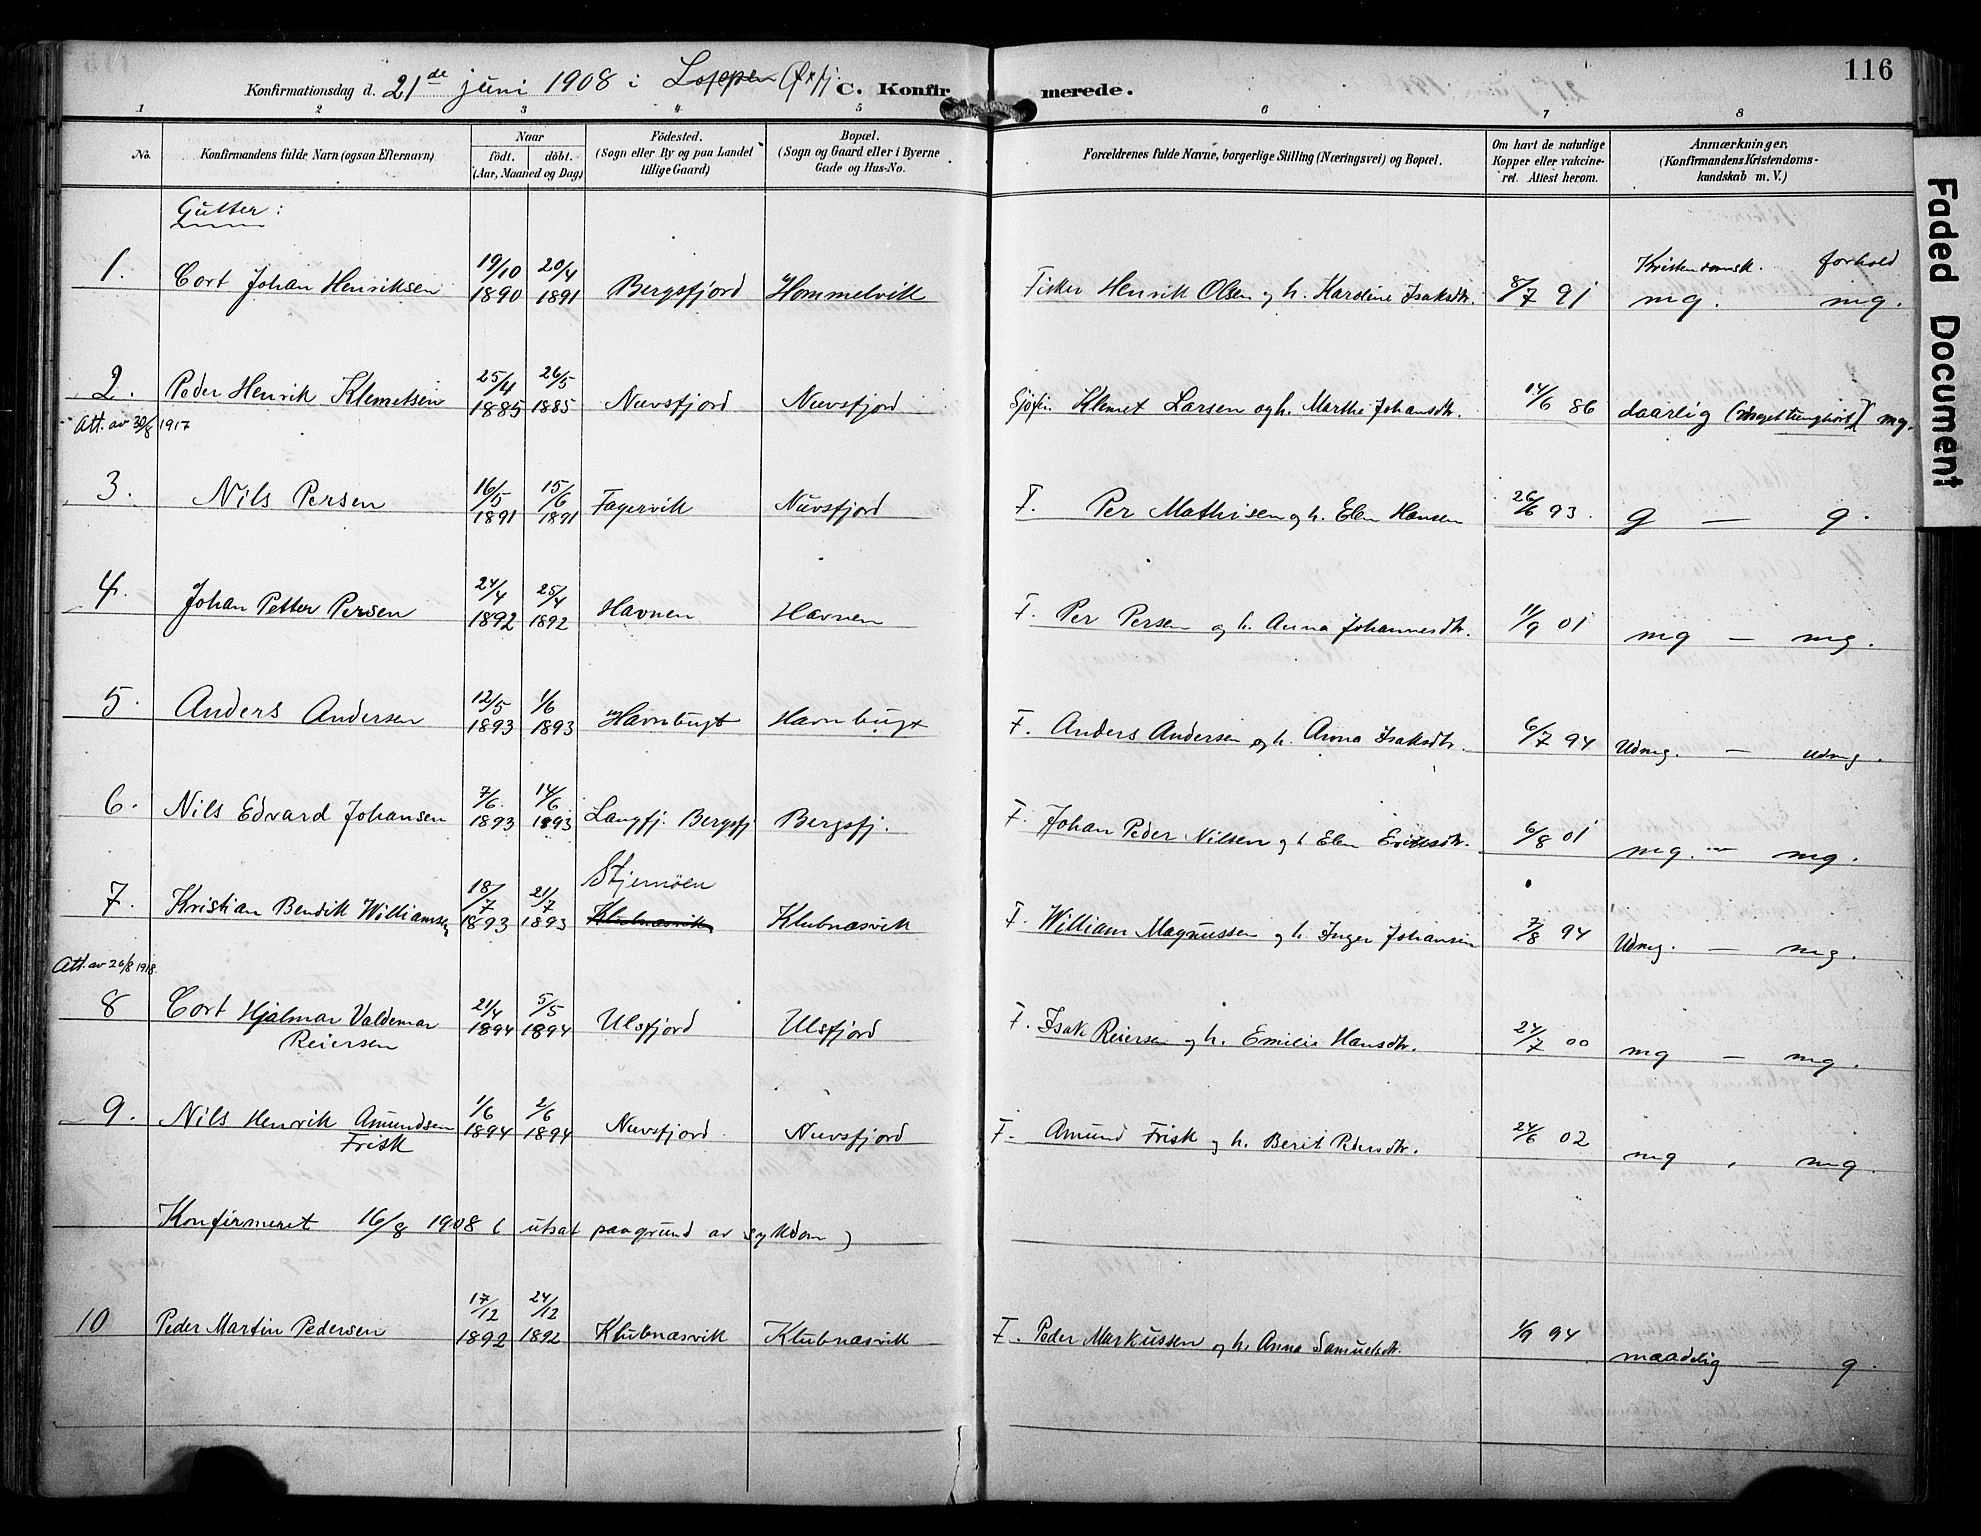 116
Konfirmationsdag d. 21de juni 1908 i Loppen C. Konfirmerede.
1 2 3 4 5 6 7 8
No. Konfirmandens fulde Navn (ogsaa Efternavn) Naar født. døbt. (Aar, Maaned og Dag) Fødested. (Sogn eller By og paa Landet tillige Gaard) Bopæl. (Sogn og Gaard eller i Byerne Gade og Hus-No. Forældrenes fulde Navne, borgerlige Stilling (Næringsvei) og Bopæl. Om havt de naturlige Kopper eller vaccineret. Attest herom. Anmærkninger, (Konfirmandens Kristendomskundskab m. V.)
Gutter:
Kristendomsk. forhold
1. Cort Johan Henriksen 19/10 1890 20/4 1891 Bergsfjord Hommelvik Fisker Henrik Olsen og h. Karoline Isaksdtr. 8/7 91 mg. mg.
2. Peder Henrik Klemetsen 25/4 1885 26/5 1885 Nuvsfjord Nuvsfjord Klemet Larsen og h. Marthe Johansdtr. 14/6 86 daarlig (meget tunghørt) mg.
Att. av 30/8 1917
3. Nils Persen 16/5 1891 15/6 1891 Fagervik Nuvsfjord F. Per Mathisen og h. Elen Hansen 26/6 93. g — g.
4. Johan Petter Persen 24/4 1892 25/4 1892 Havnen Havnen F. Per Persen og h. Anna Johannesdtr. 11/9 01 mg — mg.
5. Anders Andersen 12/5 1893 1/6 1893 Havnbugt Havnbugt F. Anders Andersen og h. Anna Isaksdtr. 6/7 94 Udmg. — udmg.
6. Nils Edvard Johansen 7/6 1893 14/6 1893 Langfj. Bergsfj Bergsfj. F. Johan Peder Nilsen og h Elen Eriksdtr. 6/8 01 mg. — mg.
7. Kristian Bendik Williamsen 18/7 1893 21/7 1893 Stjernöen Klubnæsvik Klubnæsvik F. William Magnussen og h. Inger Johansen 7/8 94 Udmg. — mg.
Att. av 26/8 1918.
8 Cort Hjalmar Valdemar Reiersen 21/4 1894 5/5 1894 Ulsfjord Ulsfjord F. Isak Reiersen og h. Emilie Hansdtr. 24/7 00 mg — mg.
9. Nils Henrik Amundsen Frisk 1/6 1894 2/6 1894 Nuvsfjord Nuvsfjord F. Amund Frisk og h. Berit Pedersdtr. 24/6 02 mg , mg.
Konfirmeret 16/8 1908 (utsat paagrund av sykdom)
10 Peder Martin Pedersen 17/12 1892 24/12 1892 Klubnæsvik Klubnæsvik F. Peder Markussen og h. Anna Samuelsdtr. 1/9 94 maadelig — g.
Faded Document